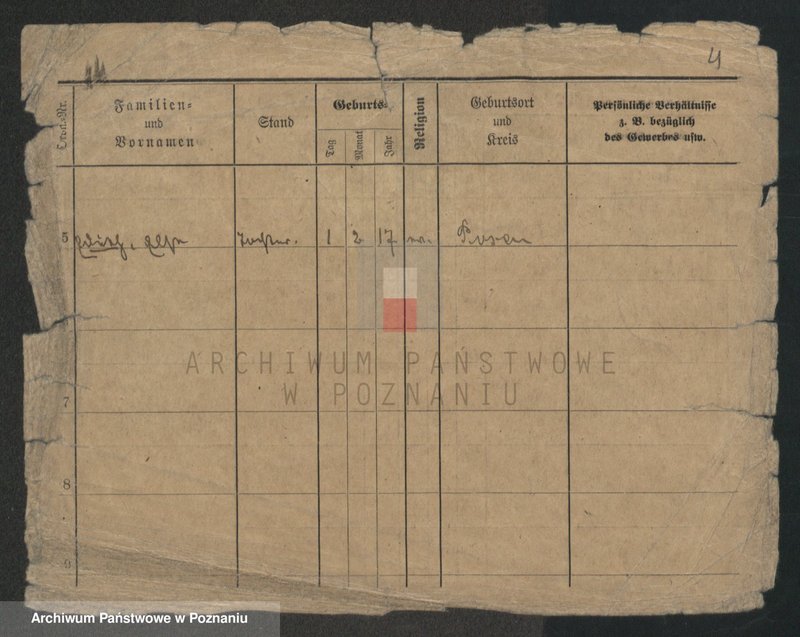 4
Ord.-Nr.
Familien-
und
Vornamen
Stand
Geburts-
Tag
Monat
Jahr
Religion
Geburtsort
und
Kreis
Persönliche Verhältnisse
z. B. bezüglich
des Gewerbes usw.
5 Edith, Else Tochter. 1 2 17 ev. Posen
ARCHIWUM PAŃSTWOWE
W POZNANIU
7
8
9
Archiwum Państwowe w Poznaniu